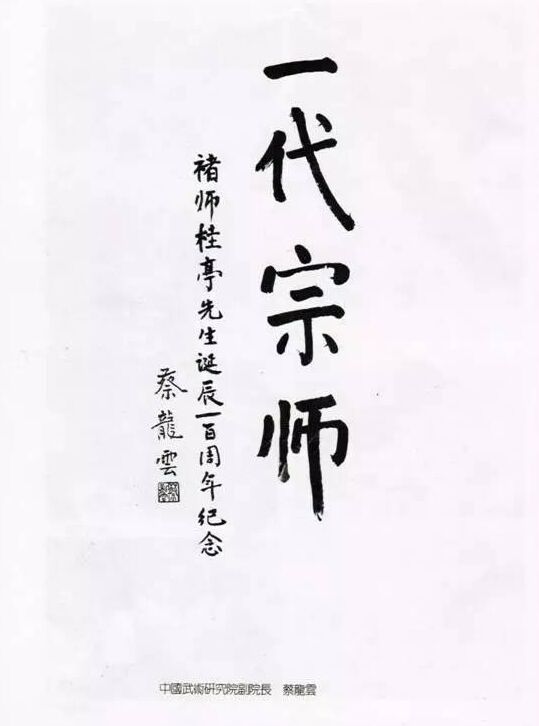 一代宗师
褚师桂亭先生诞辰一百周年纪念
蔡龍雲
中國武術研究院副院長 蔡龍雲